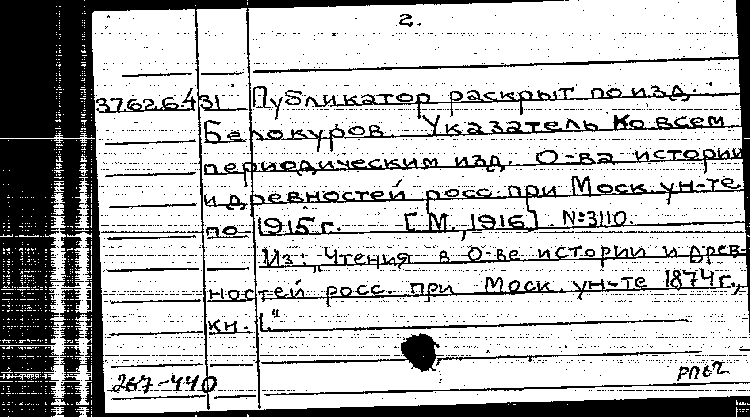 2.
37626431 Публикатор раскрыт по изд.:
Белокуров. Указатель ко всем
периодическим изд. О-ва истории
и древностей росс. при Моск. ун-те
по 1915 г. [М., 1916]. №3110.
Из: „Чтения в О-ве истории и древ-
ностей росс. при Моск. ун-те 1874 г.,
кн. 1."
267-440
РП62